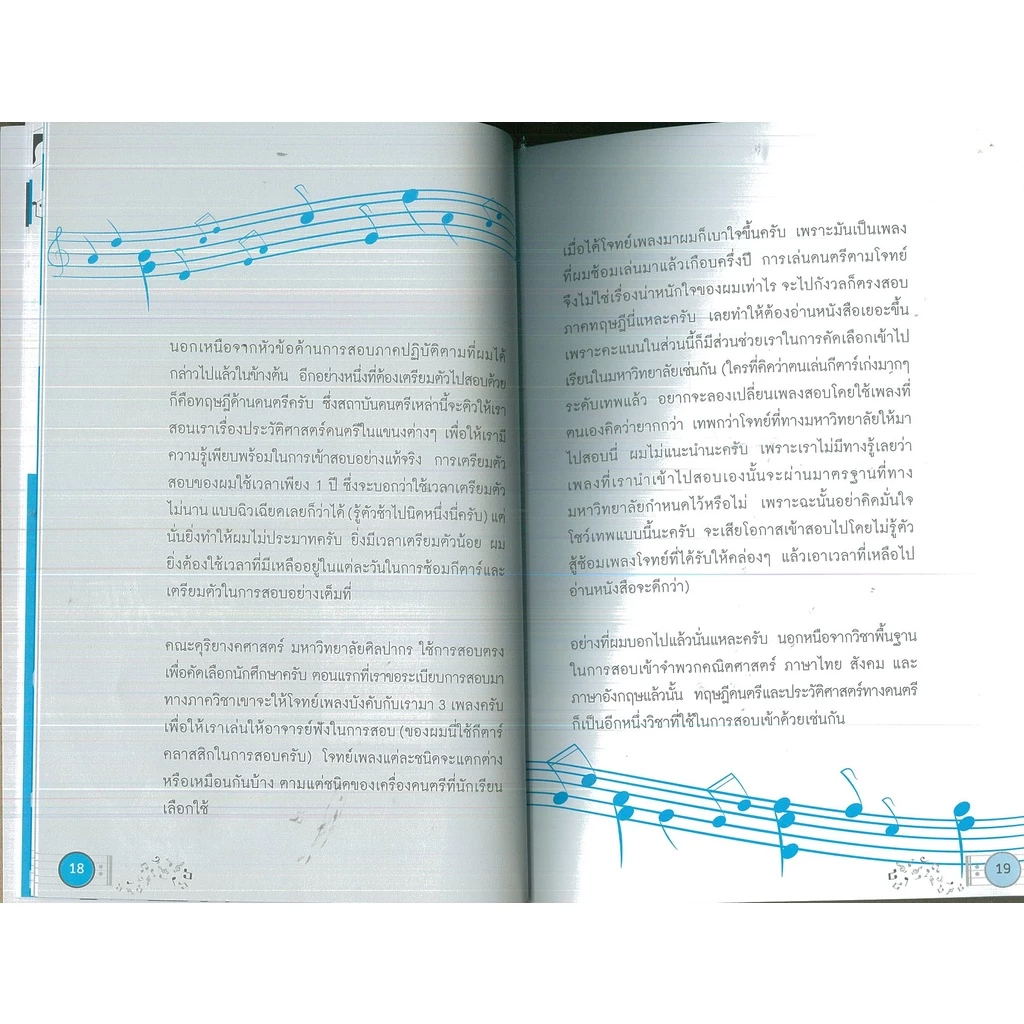 นอกเหนือจากหัวข้อด้านการสอบภาคปฏิบัติตามที่ผมได้
กล่าวไปแล้วในข้างต้น อีกอย่างหนึ่งที่ต้องเตรียมตัวไปสอบด้วย
ก็คือทฤษฎีด้านดนตรีครับ ซึ่งสถาบันดนตรีเหล่านี้จะติวให้เรา
สอนเราเรื่องประวัติศาสตร์ดนตรีในแขนงต่างๆ เพื่อให้เรามี
ความรู้เพียบพร้อมในการเข้าสอบอย่างแท้จริง การเตรียมตัว
สอบของผมใช้เวลาเพียง 1 ปี ซึ่งจะบอกว่าใช้เวลาเตรียมตัว
ไม่นาน แบบฉิวเฉียดเลยก็ว่าได้ (รู้ตัวช้าไปนิดหนึ่งนี่ครับ) แต่
นั่นยิ่งทำให้ผมไม่ประมาทครับ ยิ่งมีเวลาเตรียมตัวน้อย ผม
ยิ่งต้องใช้เวลาที่มีเหลืออยู่ในแต่ละวันในการซ้อมกีตาร์และ
เตรียมตัวในการสอบอย่างเต็มที่
คณะดุริยางคศาสตร์ มหาวิทยาลัยศิลปากร ใช้การสอบตรง
เพื่อคัดเลือกนักศึกษาครับ ตอนแรกที่เราขอระเบียบการสอบมา
ทางภาควิชาเขาจะให้โจทย์เพลงบังคับกับเรามา 3 เพลงครับ
เพื่อให้เราเล่นให้อาจารย์ฟังในการสอบ (ของผมนี่ใช้กีตาร์
คลาสสิกในการสอบครับ) โจทย์เพลงแต่ละชนิดจะแตกต่าง
หรือเหมือนกันบ้าง ตามแต่ชนิดของเครื่องดนตรีที่นักเรียน
เลือกใช้
18
เมื่อได้โจทย์เพลงมาผมก็เบาใจขึ้นครับ เพราะมันเป็นเพลง
ที่ผมซ้อมเล่นมาแล้วเกือบครึ่งปี การเล่นดนตรีตามโจทย์
จึงไม่ใช่เรื่องน่าหนักใจของผมเท่าไร จะไปกังวลก็ตรงสอบ
ภาคทฤษฎีนี่แหละครับ เลยทำให้ต้องอ่านหนังสือเยอะขึ้น
เพราะคะแนนในส่วนนี้ก็มีส่วนช่วยเราในการคัดเลือกเข้าไป
เรียนในมหาวิทยาลัยเช่นกัน (ใครที่คิดว่าตนเล่นกีตาร์เก่งมากๆ
ระดับเทพแล้ว อยากจะลองเปลี่ยนเพลงสอบโดยใช้เพลงที่
ตนเองคิดว่ายากกว่า เทพกว่าโจทย์ที่ทางมหาวิทยาลัยให้มา
ไปสอบนี่ ผมไม่แนะนำนะครับ เพราะเราไม่มีทางรู้เลยว่า
เพลงที่เรานำเข้าไปสอบเองนั้นจะผ่านมาตรฐานที่ทาง
มหาวิทยาลัยกำหนดไว้หรือไม่ เพราะฉะนั้นอย่าคิดมั่นใจ
โชว์เทพแบบนี้นะครับ จะเสียโอกาสเข้าสอบไปโดยไม่รู้ตัว
สู้ซ้อมเพลงโจทย์ที่ได้รับให้คล่องๆ แล้วเอาเวลาที่เหลือไป
อ่านหนังสือจะดีกว่า)
อย่างที่ผมบอกไปแล้วนั่นแหละครับ นอกหนือจากวิชาพื้นฐาน
ในการสอบเข้าจำพวกคณิตศาสตร์ ภาษาไทย สังคม และ
ภาษาอังกฤษแล้วนั้น ทฤษฎีดนตรีและประวัติศาสตร์ทางดนตรี
ก็เป็นอีกหนึ่งวิชาที่ใช้ในการสอบเข้าด้วยเช่นกัน
19